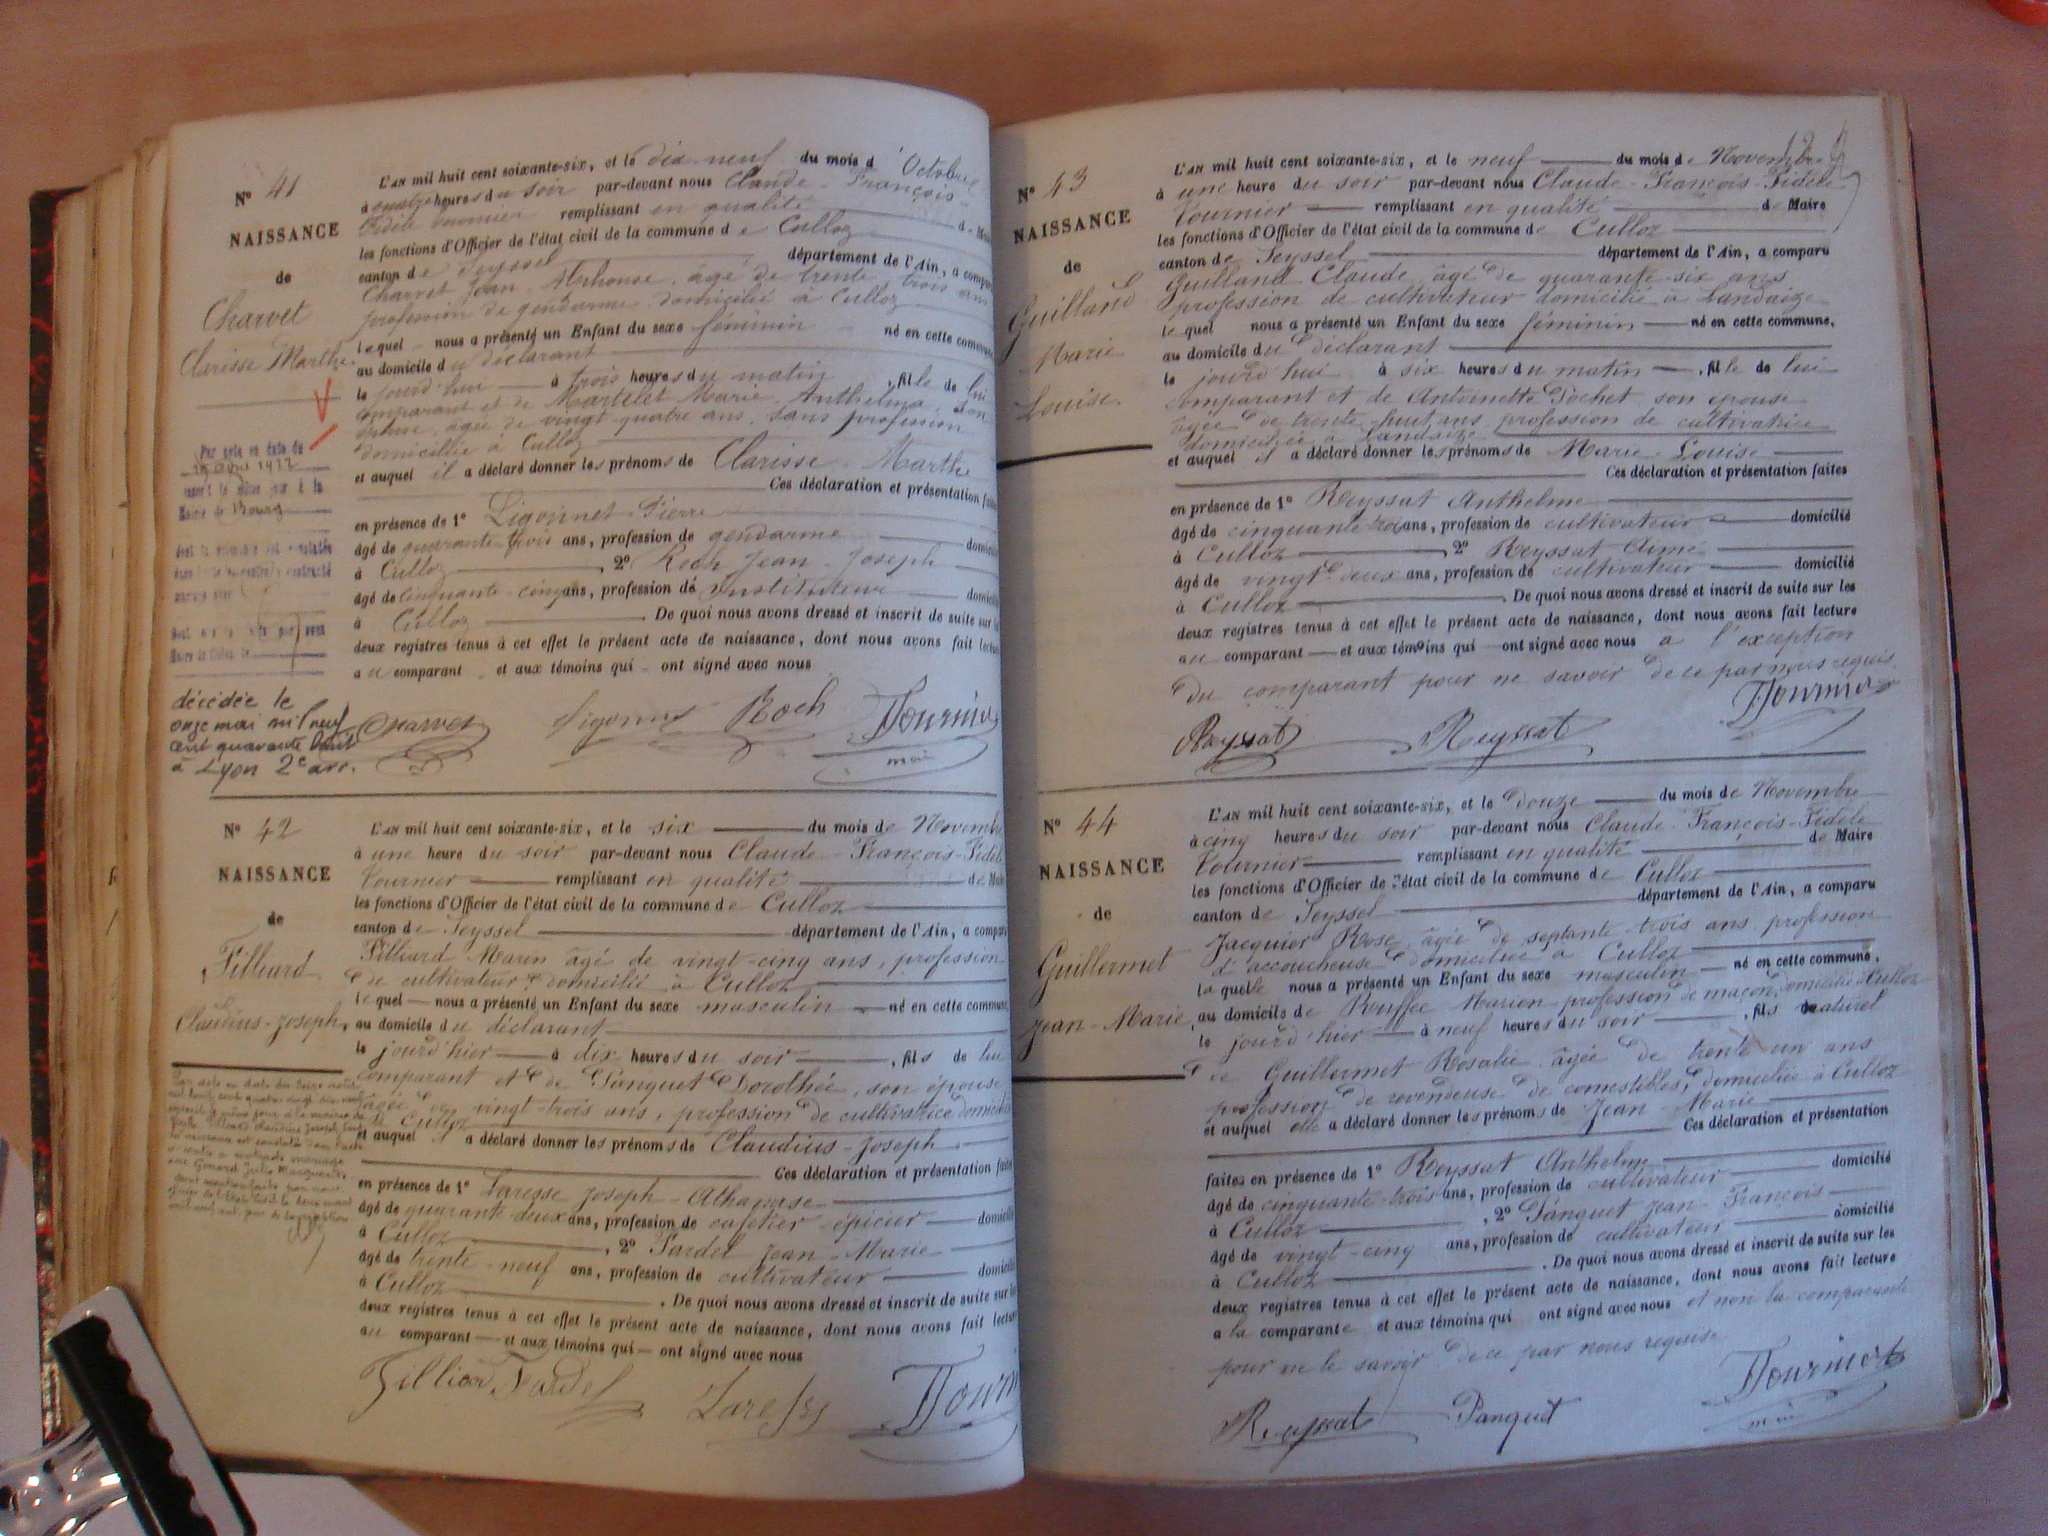 N° 41
NAISSANCE
de
Charvet
Clarisse Marthe
L'AN mil huit cent soixante-six, et le dix neuf du mois d'Octobre
à quatre heures du soir par-devant nous Claude-François-
Fidèle Tournier remplissant en qualité de Maire
les fonctions d'Officier de l'état civil de la commune de Culloz
canton de Seyssel département de l'Ain, a comparu
Charvet Jean-Alphonse, âgé de trente trois ans
profession de gendarme domicilié à Culloz
lequel nous a présenté un Enfant du sexe féminin né en cette commune
au domicile du déclarant
le jourd'hui à trois heures du matin, fille de lui
comparant et de Martelet Marie Anthelma, son
épouse, âgée de vingt-quatre ans, sans profession
domiciliée à Culloz
et auquel il a déclaré donner les prénoms de Clarisse Marthe
Ces déclaration et présentation faites
en présence de 1° Ligonnet Pierre
âgé de quarante-trois ans, profession de gendarme domicilié
à Culloz, 2° Roch Jean-Joseph
âgé de cinquante-cinq ans, profession de instituteur domicilié
à Culloz De quoi nous avons dressé et inscrit de suite sur les
deux registres tenus à cet effet le présent acte de naissance, dont nous avons fait lecture
au comparant et aux témoins qui ont signé avec nous
Charvet Ligonnet Roch Tournier
Par acte en date du
décédée le
onze mai mil neuf
cent quarante huit
à Lyon 2e arr.
N° 42
NAISSANCE
de
Filliard
Claudius-Joseph,
L'AN mil huit cent soixante-six, et le six du mois de Novembre
à une heure du soir par-devant nous Claude-François-Fidèle
Tournier remplissant en qualité de Maire
les fonctions d'Officier de l'état civil de la commune de Culloz
canton de Seyssel département de l'Ain, a comparu
Filliard Marin âgé de vingt-cinq ans, profession
de cultivateur domicilié à Culloz
lequel nous a présenté un Enfant du sexe masculin né en cette commune
au domicile du déclarant
le jourd'hier à dix heures du soir, fils de lui
comparant et de Panquet Dorothée, son épouse
âgée de vingt-trois ans, profession de cultivatrice domiciliée
à Culloz
et auquel il a déclaré donner les prénoms de Claudius-Joseph
Ces déclaration et présentation faites
en présence de 1° Laresse Joseph-Athanase
âgé de quarante-deux ans, profession de cafetier-épicier domicilié
à Culloz, 2° Jardel Jean-Marie
âgé de trente-neuf ans, profession de cultivateur domicilié
à Culloz. De quoi nous avons dressé et inscrit de suite sur les
deux registres tenus à cet effet le présent acte de naissance, dont nous avons fait lecture
au comparant et aux témoins qui ont signé avec nous
Filliard Jardel Laresse Tournier
N° 43
NAISSANCE
de
Guilland
Marie
Louise.
L'AN mil huit cent soixante-six, et le neuf du mois de Novembre
à une heure du soir par-devant nous Claude-François-Fidèle
Tournier remplissant en qualité de Maire
les fonctions d'Officier de l'état civil de la commune de Culloz
canton de Seyssel département de l'Ain, a comparu
Guilland Claude âgé de quarante-six ans
profession de cultivateur domicilié à Landaize
lequel nous a présenté un Enfant du sexe féminin né en cette commune,
au domicile du déclarant
le jourd'hui à six heures du matin, fille de lui
comparant et de Antoinette Pochet son épouse
âgée de trente-huit ans profession de cultivatrice
domiciliée à Landaize
et auquel il a déclaré donner les prénoms de Marie Louise
Ces déclaration et présentation faites
en présence de 1° Reyssat Anthelme
âgé de cinquante trois ans, profession de cultivateur domicilié
à Culloz, 2° Reyssat Aimé
âgé de vingt-deux ans, profession de cultivateur domicilié
à Culloz. De quoi nous avons dressé et inscrit de suite sur les
deux registres tenus à cet effet le présent acte de naissance, dont nous avons fait lecture
au comparant et aux témoins qui ont signé avec nous a l'exception
du comparant pour ne savoir de ce par nous requis.
Reyssat Reyssat Tournier
N° 44
NAISSANCE
de
Guillermet
Jean-Marie,
L'AN mil huit cent soixante-six, et le douze du mois de Novembre
à cinq heures du soir par-devant nous Claude-François-Fidèle
Tournier remplissant en qualité de Maire
les fonctions d'Officier de l'état civil de la commune de Culloz
canton de Seyssel département de l'Ain, a comparu
Jacquier Rose, âgée de septante-trois ans profession
d'accoucheuse domiciliée à Culloz
laquelle nous a présenté un Enfant du sexe masculin né en cette commune,
au domicile de Rouffe Marion profession de maçon, domicilié à Culloz
le jourd'hier à neuf heures du soir, fils naturel
de Guillermet Rosalie âgée de trente un ans
profession de revendeuse de comestibles, domiciliée à Culloz
et auquel elle a déclaré donner les prénoms de Jean-Marie
Ces déclaration et présentation
faites en présence de 1° Reyssat Anthelme domicilié
âgé de cinquante trois ans, profession de cultivateur
à Culloz, 2° Panquet Jean-François
âgé de vingt-cinq ans, profession de cultivateur domicilié
à Culloz. De quoi nous avons dressé et inscrit de suite sur les
deux registres tenus à cet effet le présent acte de naissance, dont nous avons fait lecture
a la comparante et aux témoins qui ont signé avec nous et non la comparante
pour ne le savoir de ce par nous requise
Reyssat Panquet Tournier